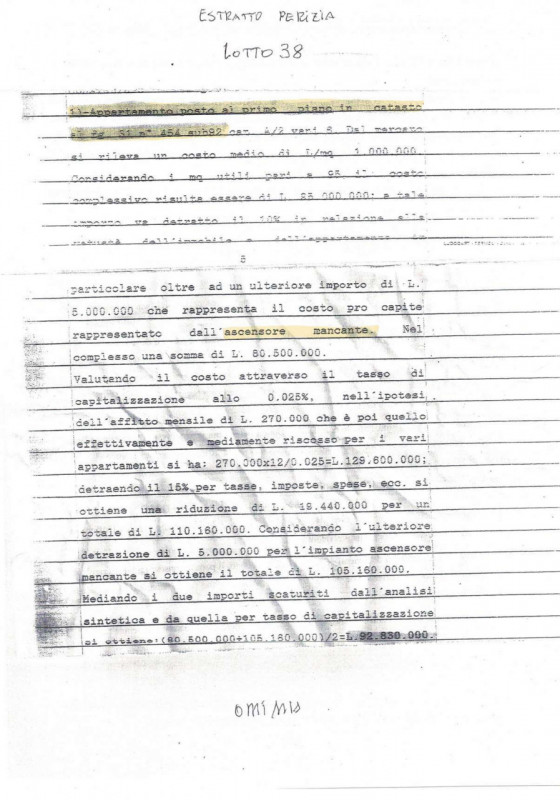 ESTRATTO PERIZIA
LOTTO 38
1)-Appartamento posto al primo piano in catasto
al Fg. 31 n° 454 sub92 cat. A/2 vari 5. Dal mercato
si rileva un costo medio di L/mq 1.000.000.
Considerando i mq utili pari a 95 il costo
complessivo risulta essere di L. 95.000.000; a tale
importo va detratto il 10% in relazione alla
vetustà dell'immobile e dell'appartamento in
5
particolare oltre ad un ulteriore importo di L.
5.000.000 che rappresenta il costo pro capite
rappresentato dall'ascensore mancante. Nel
complesso una somma di L. 80.500.000.
Valutando il costo attraverso il tasso di
capitalizzazione allo 0.025%, nell'ipotesi
dell'affitto mensile di L. 270.000 che è poi quello
effettivamente e mediamente riscosso per i vari
appartamenti si ha: 270.000x12/0.025=L.129.600.000;
detraendo il 15% per tasse, imposte, spese, ecc. si
ottiene una riduzione di L. 19.440.000 per un
totale di L. 110.160.000. Considerando l'ulteriore
detrazione di L. 5.000.000 per l'impianto ascensore
mancante si ottiene il totale di L. 105.160.000.
Mediando i due importi scaturiti dall'analisi
sintetica e da quella per tasso di capitalizzazione
si ottiene:(80.500.000+105.160.000)/2=L.92.830.000.
OMISSIS